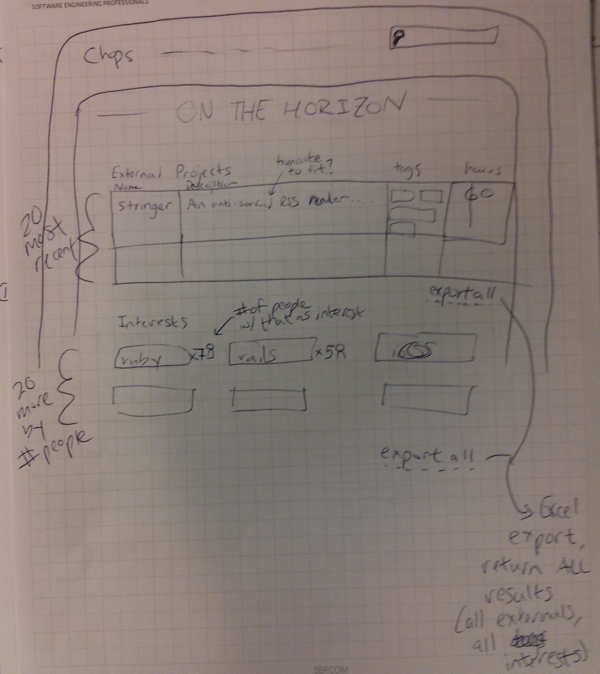 SOFTWARE ENGINEERING PROFESSIONALS
Chops
ON THE HORIZON
External Projects
truncate
to fit?
tags
hours
Name
Description
Stringer
An anti-social RSS reader...
60
20
most
recent
export all
Interests
# of people
w/ that as interest
ruby x78
rails x58
iOS
20
more
by
# people
export all
Excel
export,
return ALL
results
(all externals,
all interests)
SEP.COM